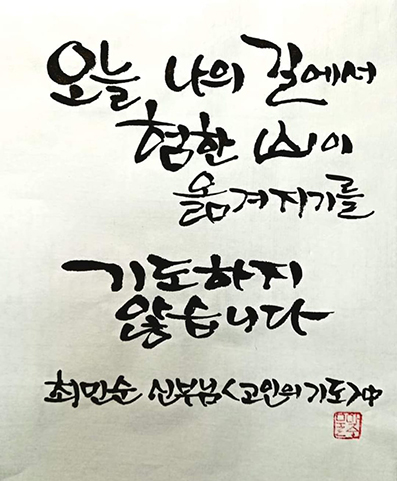 오늘 나의 길에서
험한 山이
옮겨지기를
기도하지
않습니다
최민순 신부님<고인의 기도>中